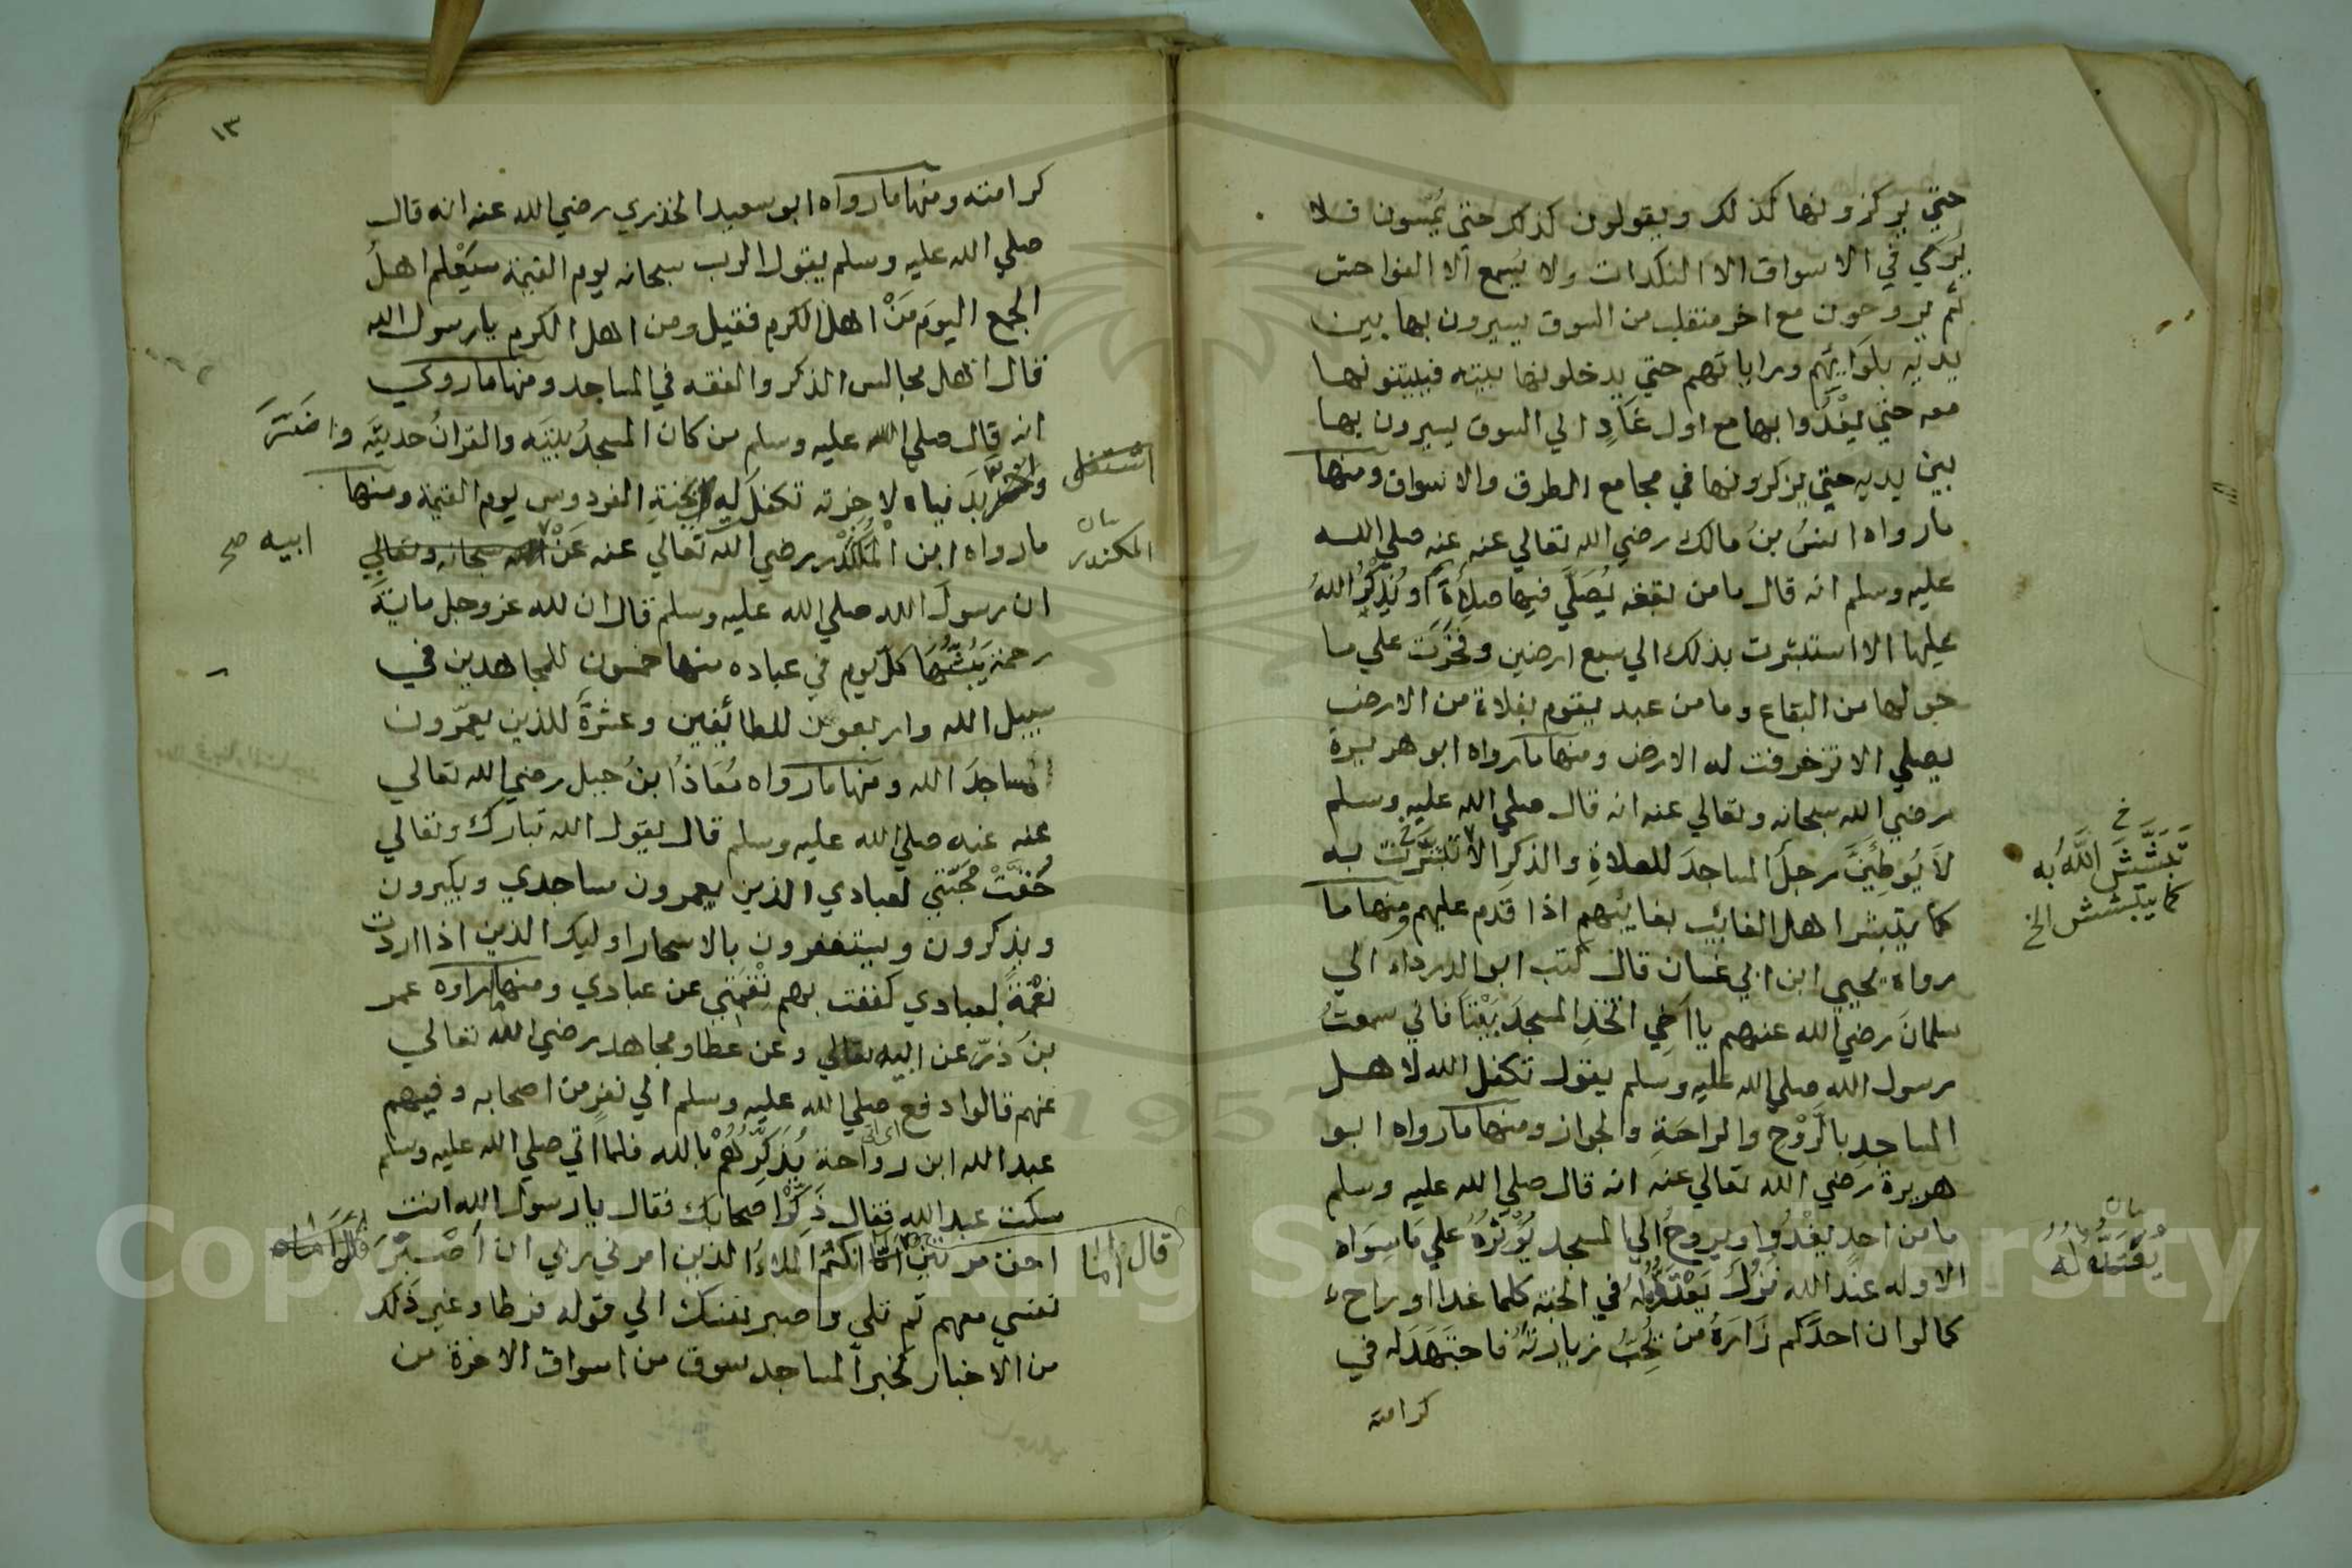 حتي يركزونها كذلك ويقولون كذلك حتي يمسون فلا
يري في الاسواق الا النكدات ولا يسمع الا الفواحش
ثم يروحون مع اخر منقلب من السوق يسيرون بها بين
يديه بلوائهم وراياتهم حتي يدخلونها بيته فيبيتونها
معه حتي يغدوا بها مع اول غاد الي السوق يسيرون بها
بين يديه حتي يركزونها في مجامع الطرق والاسواق ومنها
مارواه انسُ بنُ مالك رضي الله تعالي عنه عنه صلي الله
عليه وسلم انه قال ما من بقعه يُصَلَّي فيها صلاةٌ او يُذكرُ اللهُ
عليها الا استبشرت بذلك الي سبع ارضين وفخرت علي ما
حولها من البقاع وما من عبد يقوم بفلاة من الارض
يصلي الا تزخرفت له الارض ومنها مارواه ابو هريرة
رضي الله سبحانه وتعالي عنه انه قال صلي الله عليه وسلم
لا يُوطِئَنَّ رجلٌ المساجدَ للصلاةِ والذكرِ الا به
كما يتبشر اهل الغائب بغائبهم اذا قدم عليهم ومنها ما
رواه يحيي ابن ابي غسان قال كتب ابو الدرداء الي
سلمان رضي الله عنهم يا اخي اتخذِ المسجدَ بَيْتًا فاني سمعتُ
رسول الله صلي الله عليه وسلم يقول تكفل الله لاهل
المساجدِ بالرَّوْحِ والراحةِ والجواز ومنها مارواه ابو
هريرة رضي الله تعالي عنه انه قال صلي الله عليه وسلم
ما من احدٍ يغْدُوا ويروحُ الي المسجد يُوْثِرُهُ علي مَا سِوَاه
الا وله عند الله نُزُلٌ في الجنه كلما غدا او راح
كما لو ان احدكم زَارَهُ من يُحِبُّ زيارتَهُ فاجتهدَ له في
كرامته
خ
تبشَّشَ اللهُ به
كما يتبشش الخ
١٣
كرامته ومنها مارواه ابو سعيد الخذري رضي الله عنه انه قال
صلي الله عليه وسلم يقول الرب سبحانه يوم القيمة سَيَعْلم اهلُ
الجمع اليوَم مَنْ اهل الكرم فقيل ومن اهل الكرم يا رسول الله
قال اهل مجالس الذكر والفقه في المساجد ومنها ماروي
انه قال صلي الله عليه وسلم من كان المسجدُ بيتَه والقرانُ حديثَه
بدنياه لاخرته تكفل له بجنةِ الفردوس يوم القيمة ومنها
مارواه ابن المُنْكَدِر رضي الله تعالي عنه عَنْ الله سبحانه وتعالي
ان رسولَ الله صلي الله عليه وسلم قال ان لله عز وجل مائةَ
رحمة يَبُثُّهَا كلَّ يوم في عباده منها خمسون للمجاهدين في
سبيل الله واربعون للطائفين وعشرةٌ للذين يعمّرون
المساجدَ الله ومنها مارواه مُعَاذُ ابنُ جبل رضي الله تعالي
عنه عنه صلي الله عليه وسلم قال يقول الله تبارك وتعالي
حُقَّتْ مَحَبَّتي لعبادي الذين يعمرون مساجدي ويكبرون
ويذكرون ويستغفرون بالاسحار اوليك الذين اذا اردت
نِقْمَةً بعبادي كففت بهم نِقْمَتي عن عبادي ومنها ماراوه عمر
بنُ ذرّ عن ابيه تعالي وعن عطا ومجاهد رضي الله تعالي
عنهم قالوا دفع صلي الله عليه وسلم الي نفرٍ من اصحابه وفيهم
عبد الله ابن رواحة يُذَكِّرُهُمْ بالله فلما اتي صلي الله عليه وسلم
سكت عبد الله فقال ذَكِّرْ اصحابك فقال يا رسول الله انت
احق مرتين انكم المَلاءُ الذين امرني ربي ان اَصْبِرَ
نفسي معهم ثم تلي واصبر نفسك الي قوله فرطا وغير ذلك
من الاخبار كخبر المساجد سوق من اسواق الاخرة من
المكندر
ابيه صح
قال اما